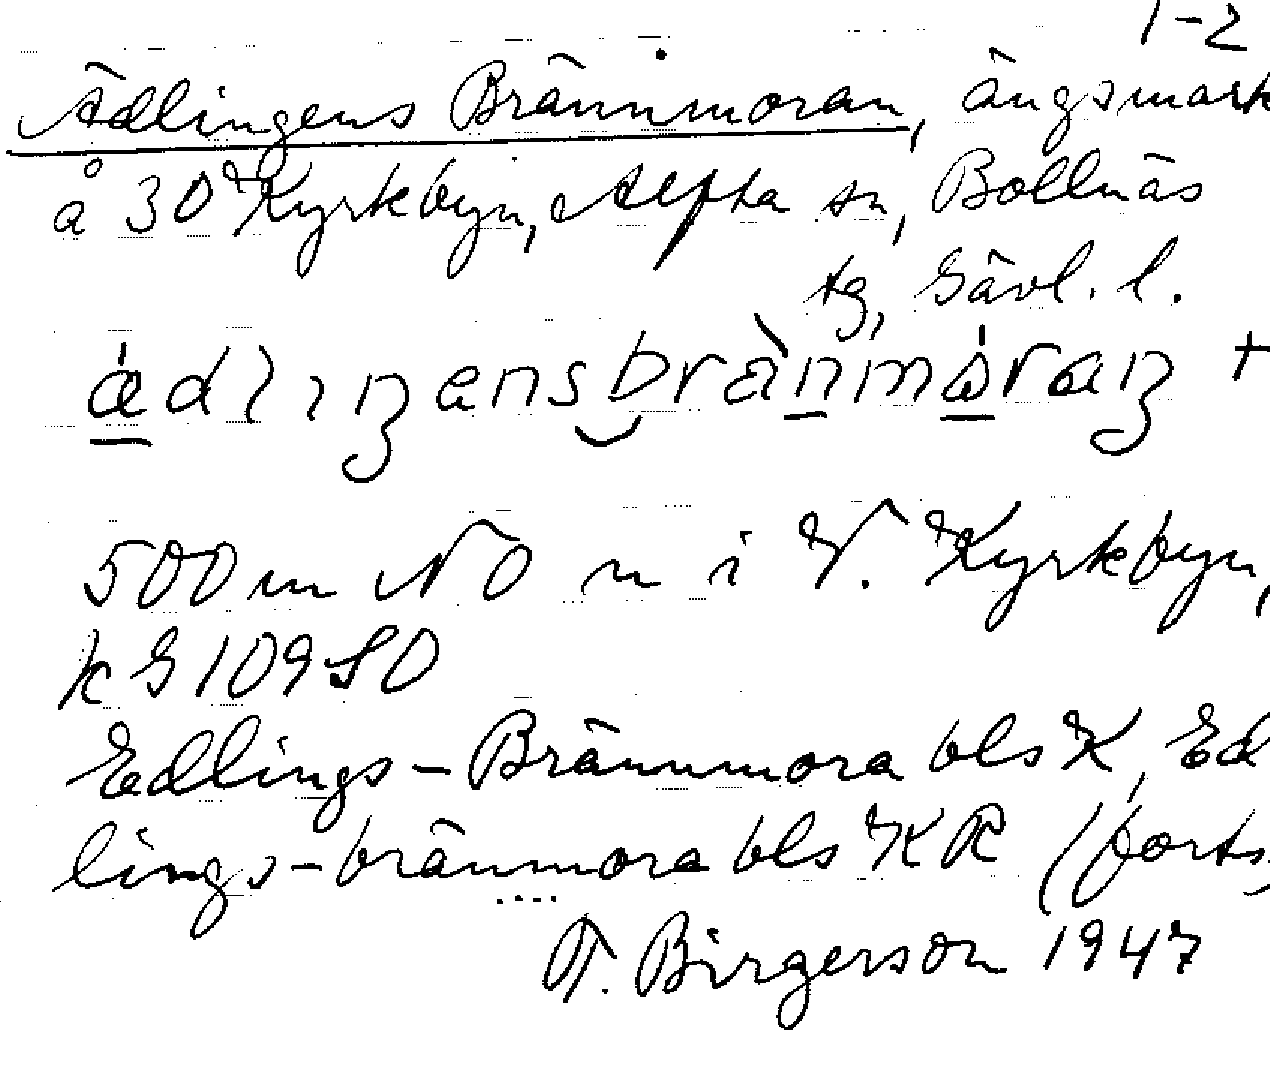 1-2
Ädlingens Brännmoran, ängsmark
å 30 Kyrkbyn, Alfta sn, Bollnäs
tg, Gävl. l.
ǽdlıŋensbrànmåraŋ +
500 m NO n i V. Kyrkbyn,
k G 109 SO
Edlings-Brännmora bls K, Ed
lings-brännmora bls KR (forts,
T. Birgerson 1947